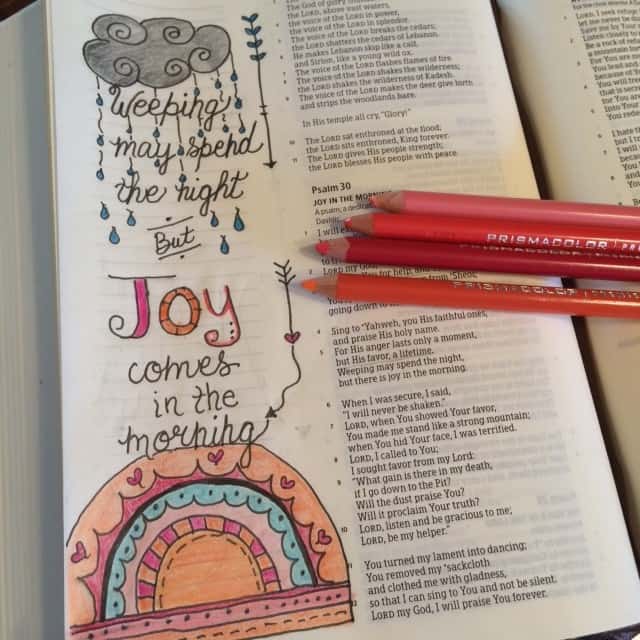 Weeping
may spend
the night
But
Joy
comes
in the
morning
The God of glory
the LORD, above vast waters,
the voice of the LORD in power,
the voice of the LORD in splendor.
5 The voice of the LORD breaks the cedars;
the LORD shatters the cedars of Lebanon.
6 He makes Lebanon skip like a calf,
and Sirion, like a young wild ox.
7 The voice of the LORD flashes flames of fire.
8 The voice of the LORD shakes the wilderness;
the LORD shakes the wilderness of Kadesh.
9 The voice of the LORD makes the deer give birth
and strips the woodlands bare.
In His temple all cry, "Glory!"
10 The LORD sat enthroned at the flood;
the LORD sits enthroned, King forever.
11 The LORD gives His people strength;
the LORD blesses His people with peace.
Psalm 30
JOY IN THE MORNING
A psalm; a
David
1 I will
2 LORD my God
You for help, and
going down to
4 Sing to *Yahweh, you His faithful ones,
and praise His holy name.
5 For His anger lasts only a moment,
but His favor, a lifetime.
Weeping may spend the night,
but there is joy in the morning.
6 When I was secure, I said,
"I will never be shaken."
7 LORD, when You showed Your favor,
You made me stand like a strong mountain;
when You hid Your face, I was terrified.
8 LORD, I called to You;
I sought favor from my Lord:
9 "What gain is there in my death,
if I go down to the Pit?
Will the dust praise You?
Will it proclaim Your truth?
10 LORD, listen and be gracious to me;
LORD, be my helper."
11 You turned my lament into dancing;
You removed my *sackcloth
and clothed me with gladness,
12 so that I can sing to You and not be silent.
LORD my God, I will praise You forever.
PRISMACOLOR
PRISMACOLOR
PRISMACOLOR
LORD, I seek refuge